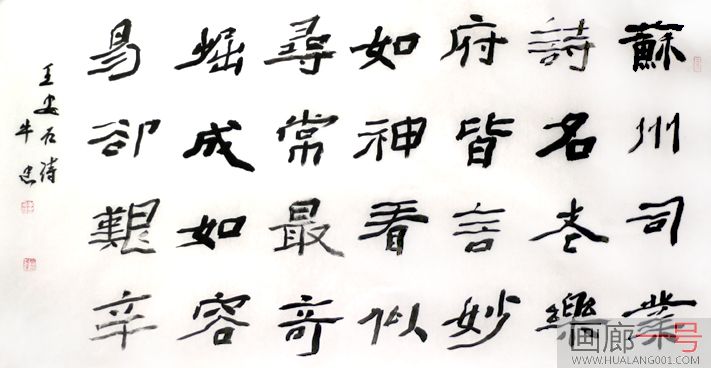 蘇州司業
詩名老樂
府皆言妙
如神看似
尋常最奇
崛成如容
易卻艱辛
王安石詩
牛
画廊一号
WWW.HUALANG001.COM